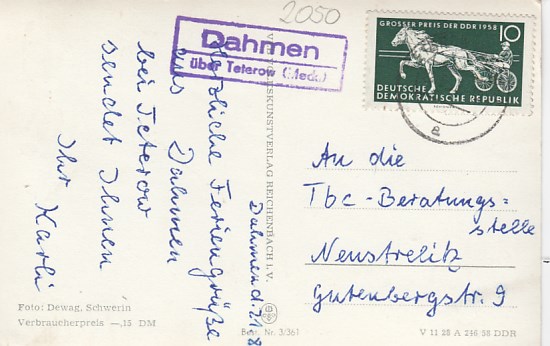 2050
Dahmen
über Teterow (Meckl)
GROSSER PREIS DER DDR 1958 10
DEUTSCHE
DEMOKRATISCHE REPUBLIK
Dahmen d. 21. 8
Herzliche Feriengrüße
aus Dahmen
bei Teterow
sendet Ihnen
Ihr Karli
An die
Tbc-Beratungs=
stelle
Neustrelitz
Gutenbergstr. 9
VOLKSKUNSTVERLAG REICHENBACH I. V.
Foto: Dewag, Schwerin
Verbraucherpreis —,15 DM
Best. Nr. 3/361
V 11 28 A 246/58 DDR